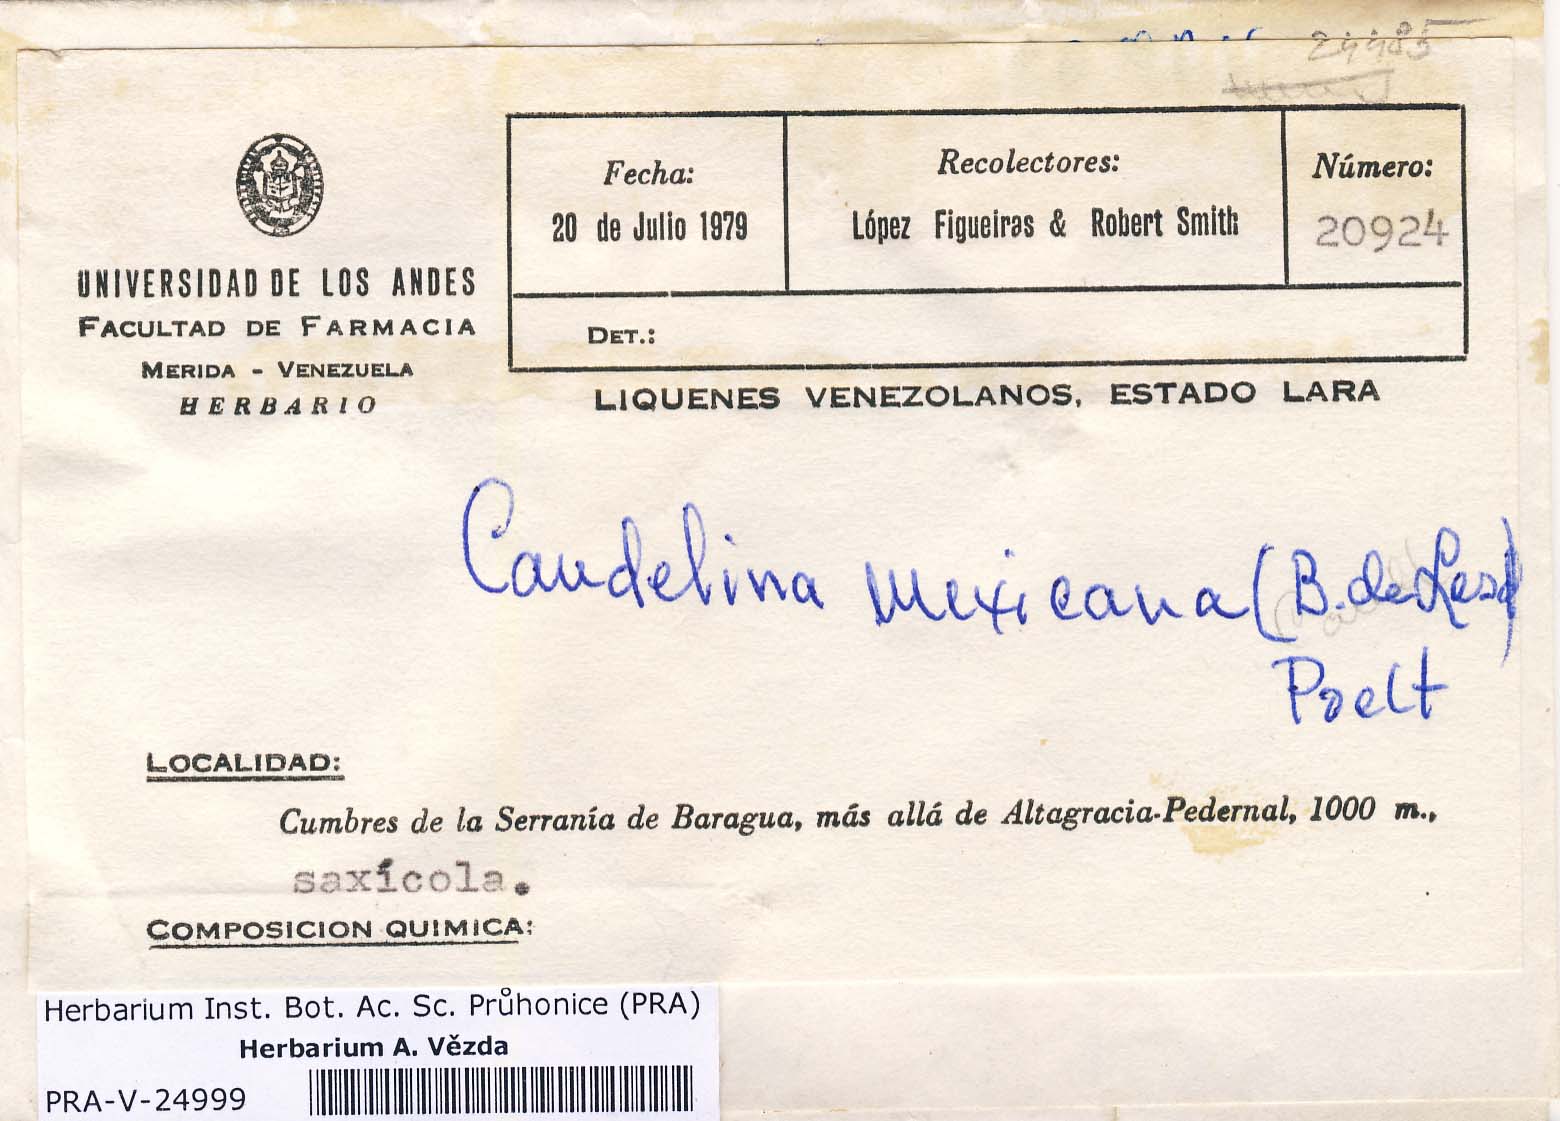 24485
Fecha:
20 de Julio 1979
Recolectores:
López Figueiras & Robert Smith
Número:
20924
DET.:
UNIVERSIDAD DE LOS ANDES
FACULTAD DE FARMACIA
MERIDA - VENEZUELA
HERBARIO
LIQUENES VENEZOLANOS, ESTADO LARA
Candelina mexicana (B. de Lesd)
Poelt
LOCALIDAD:
Cumbres de la Serranía de Baragua, más allá de Altagracia-Pedernal, 1000 m.,
saxícola.
COMPOSICION QUIMICA:
Herbarium Inst. Bot. Ac. Sc. Průhonice (PRA)
Herbarium A. Vězda
PRA-V-24999